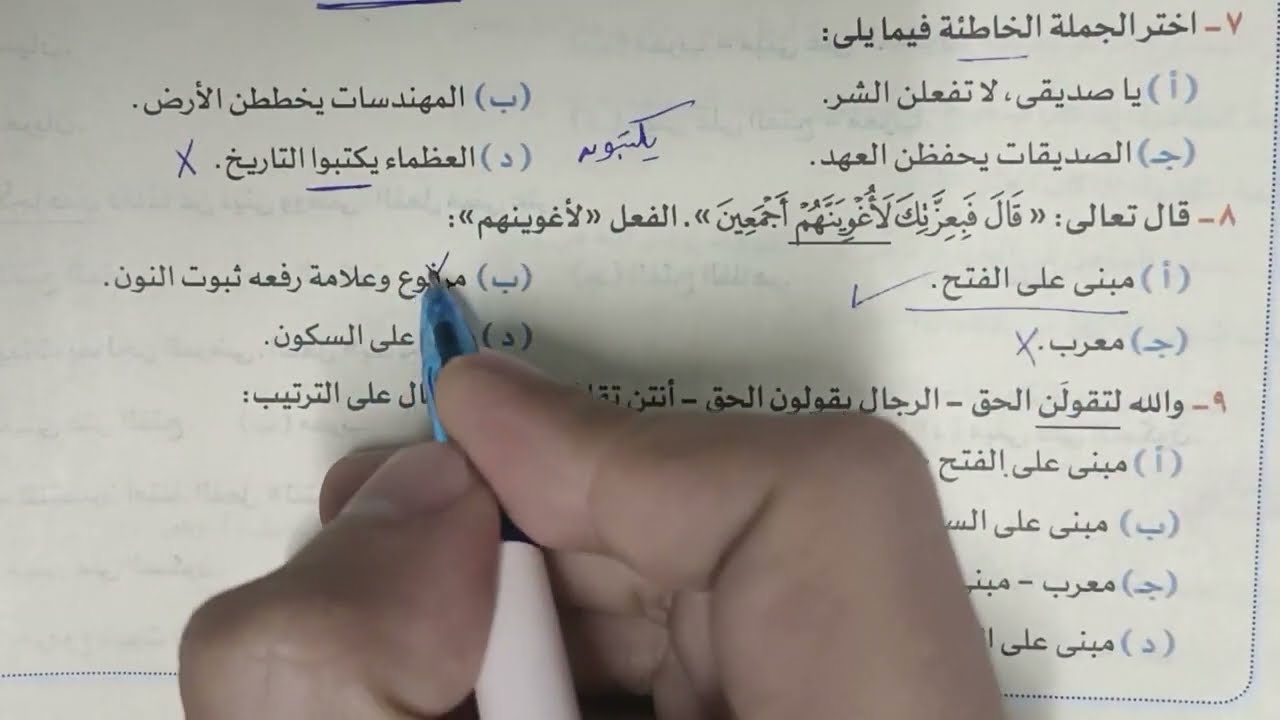 ٧- اختر الجملة الخاطئة فيما يلى:
(أ) يا صديقى، لا تفعلن الشر.
(ب) المهندسات يخططن الأرض.
(جـ) الصديقات يحفظن العهد.
يكتبون
(د) العظماء يكتبوا التاريخ. X
٨- قال تعالى: «قَالَ فَبِعِزَّتِكَ لَأُغْوِيَنَّهُمْ أَجْمَعِينَ». الفعل «لأغوينهم»:
(أ) مبنى على الفتح. ✓
(ب) مرفوع وعلامة رفعه ثبوت النون.
(جـ) معرب. X
(د) على السكون.
٩- والله لتقولَن الحق - الرجال يقولون الحق - أنتن على الترتيب:
(أ) مبنى على الفتح
(ب) مبنى على
(جـ) معرب -
(د) مبنى على